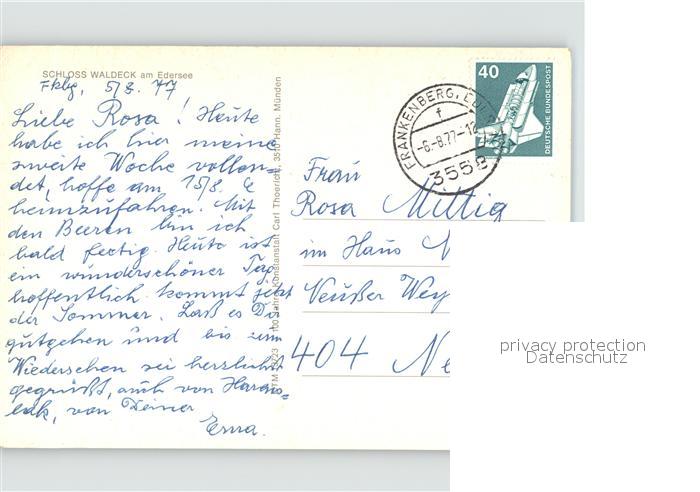 SCHLOSS WALDECK am Edersee
Fkbg, 5/8. 77
Liebe Rosa! Heute
habe ich hier meine
zweite Woche vollen-
det, hoffe am 15/8.
heimzufahren. Mit
den Beeren bin ich
bald fertig. Heute ist
ein wunderschöner Tag
hoffentlich kommt jetzt
der Sommer. Laß es Dir
gutgehen und bis zum
Wiedersehen sei herzlichst
gegrüßt, auch von
von Deiner
Erna.
100 Jahre Kunstanstalt Carl Thoericht, 3510 Hann. Münden
40
DEUTSCHE BUNDESPOST
FRANKENBERG,
f
-6.-8.77-12
3558
Frau
Rosa Mittig
im Haus
Neußer Wey
404 Ne
privacy protection
Datenschutz